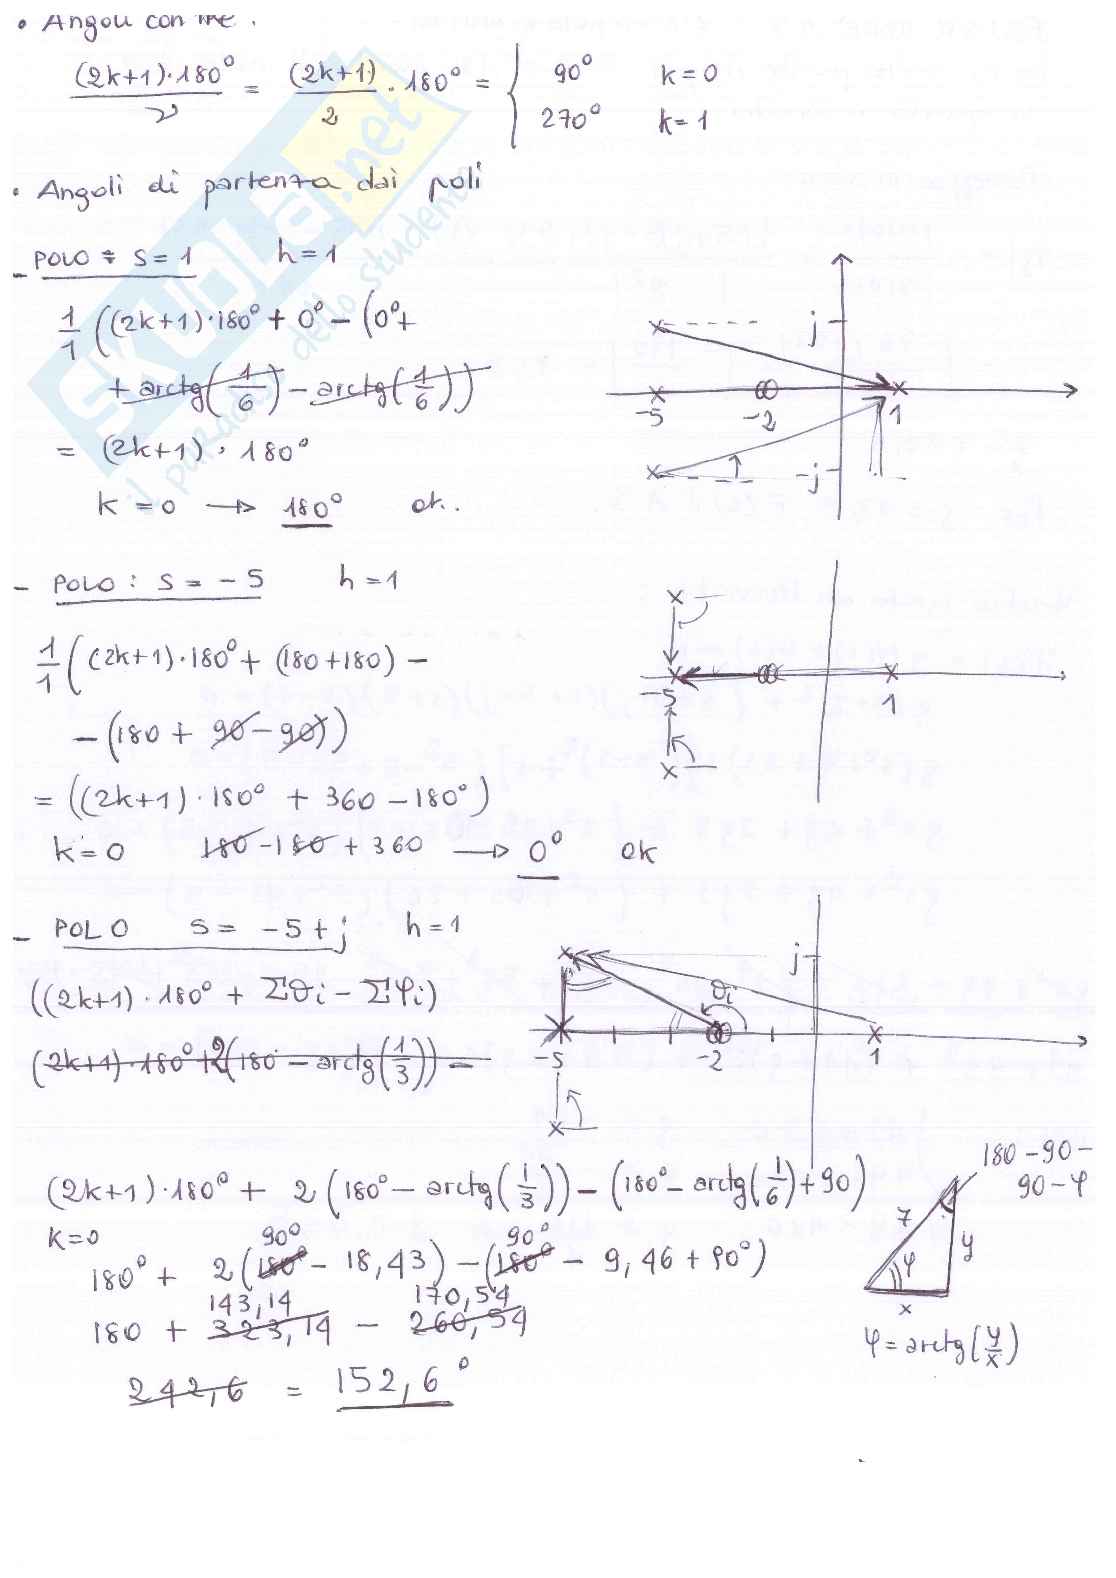 • Angoli con l're.
(2k+1)·180° / ν = (2k+1) / 2 · 180° = { 90° k=0
270° k=1
• Angoli di partenza dai poli
- POLO: s=1 h=1
1/1 ((2k+1)·180° + 0° - (0° +
+ arctg(1/6) - arctg(1/6)))
= (2k+1)·180°
k=0 → 180° ok.
j
-5 -2 1
-j
- POLO: s=-5 h=1
1/1 ((2k+1)·180° + (180+180) -
- (180 + 90 - 90))
= ((2k+1)·180° + 360 - 180°)
k=0 180 - 180 + 360 → 0° ok
-5 1
- POLO s= -5+j h=1
((2k+1)·180° + Σϑi - Σφi)
(2k+1)·180° + 2(180 - arctg(1/3)) -
j
ϑi
-5 -2 1
(2k+1)·180° + 2(180° - arctg(1/3)) - (180° - arctg(1/6) + 90)
k=0 90° 90°
180° + 2(180° - 18,43) - (180° - 9,46 + 90°)
143,14 170,54
180 + 323,14 - 260,54
242,6 = 152,6°
180-90-
90-φ
z y
φ
x
φ = arctg(y/x)
SKUOLA.net
il paradiso dello studente